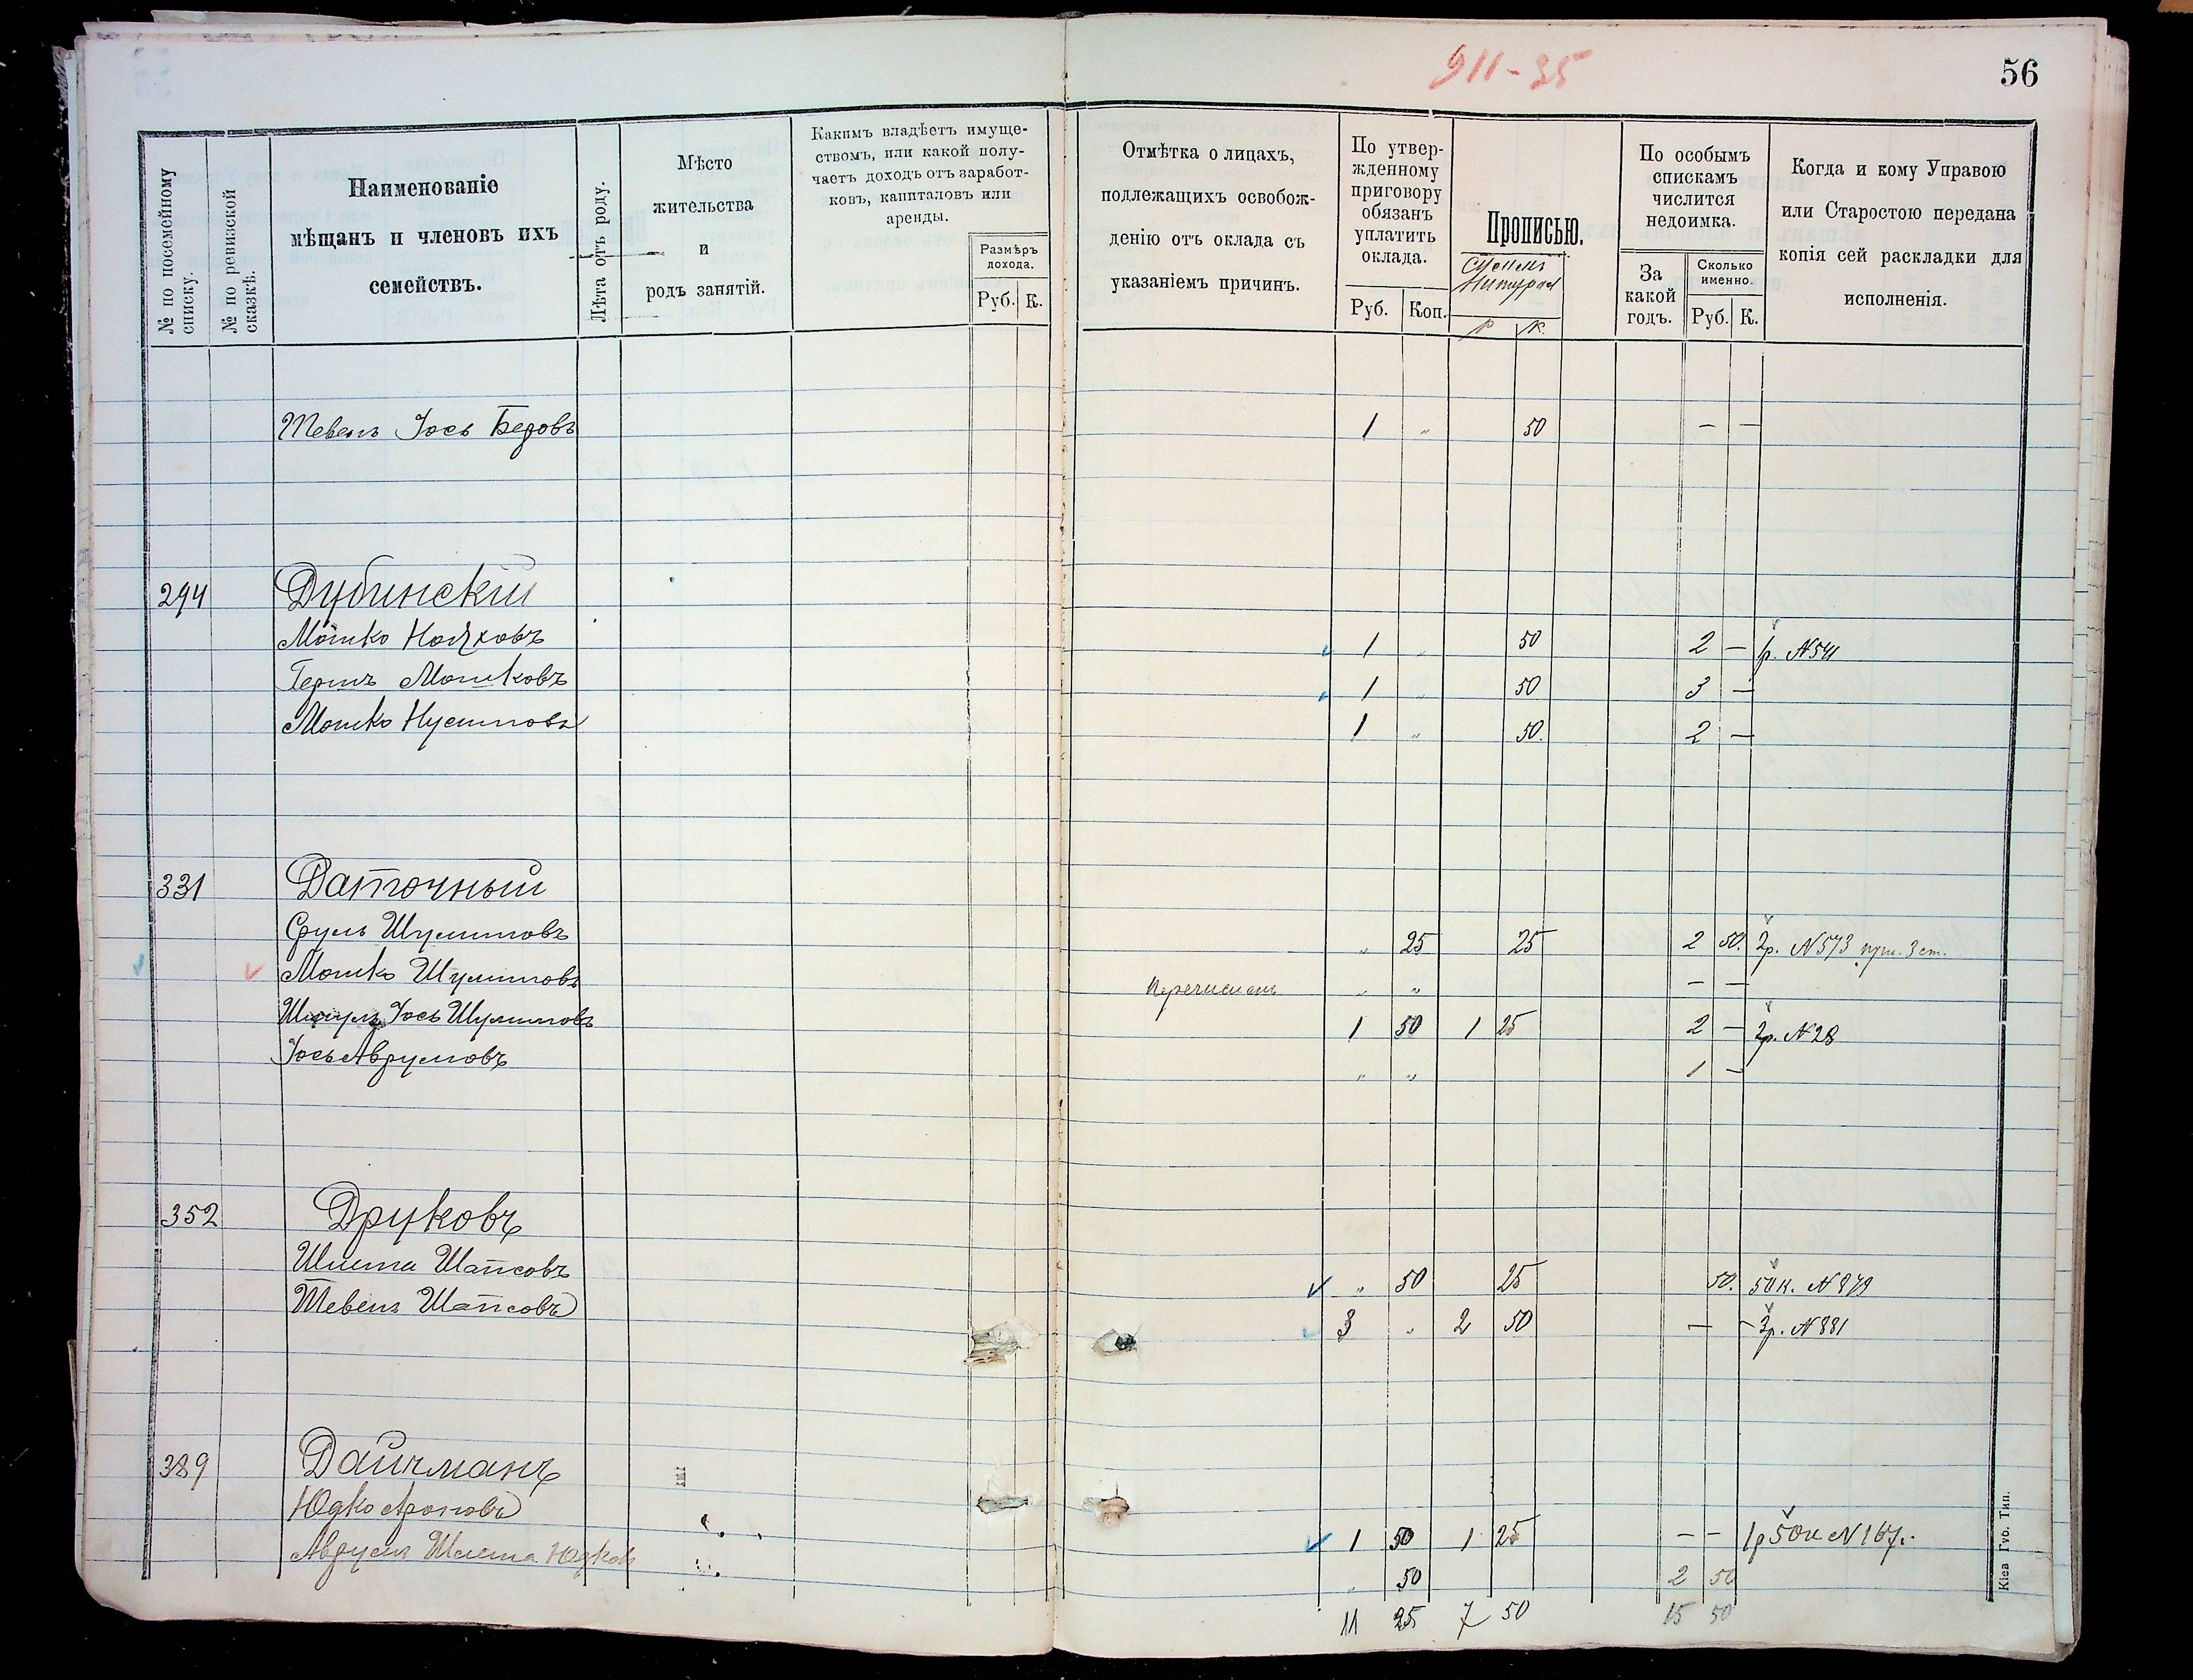 911-35
56
№ по посемейному списку.
№ по ревизской сказкѣ.
Наименованіе
мѣщанъ и членовъ ихъ
семействъ.
Лѣта отъ роду.
Мѣсто
жительства
и
родъ занятій.
Какимъ владѣетъ имуще-
ствомъ, или какой полу-
чаетъ доходъ отъ заработ-
ковъ, капиталовъ или
аренды.
Размѣръ
дохода.
Руб. К.
Отмѣтка о лицахъ,
подлежащихъ освобож-
денію отъ оклада съ
указаніемъ причинъ.
По утвер-
жденному
приговору
обязанъ
уплатить
оклада.
Руб. Коп.
Прописью.
Р К.
По особымъ
спискамъ
числится
недоимка.
За
какой
годъ.
Сколько
именно.
Руб. К.
Когда и кому Управою
или Старостою передана
копія сей раскладки для
исполненія.
Тевель Іось Беровъ 1 „ 50 — —
294 Дубинскій
Мошко 1 „ 50 2 — р. №541
Гершъ Мошковъ 1 „ 50 3 —
Мошко Нусиновъ 1 „ 50. 2 —
331 Даточный
Сруль Шулимовъ „ 25 25 2 50. 2р. №573
Мошко Шулимовъ Перечисленъ „ „ — —
Іось Шулимовъ 1 50 1 25 2 — 2р. №28
Іось Аврумовъ „ „ 1 —
352 Друковъ
Шлема Шапсовъ „ 50 25 50. 50к. №879
Тевель Шапсовъ 3 „ 2 50 — — 3р. №881
389 Дайчманъ
Юдко Ароновъ 1 50 1 25 — — 1р 50к №167.
Аврумъ Шлема Юдковъ „ 50 2 50
11 25 7 50 15 50
Кіев. Губ. Тип.